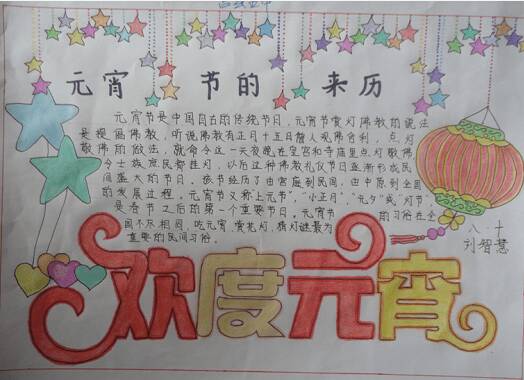 元宵节的来历
元宵节是中国自古的传统节日,元宵节赏灯佛教的说法
是提倡佛教,听说佛教有正月十五日僧人观佛舍利,点灯
敬佛的做法,就命令这一天夜晚在皇宫和寺庙里点灯敬佛
令士族庶民都挂灯,以后这种佛教礼仪节日逐渐形成民
间盛大的节日。该节经历了由宫庭到民间,由中原到全国
的发展过程。元宵节又称上元节","小正月","元夕"或"灯节"
是春节之后的第一个重要节日。元宵节的习俗在全
国不尽相同,吃元宵 赏花灯,猜灯谜最为
重要的民间习俗。
八.十
刘智慧
欢度元宵